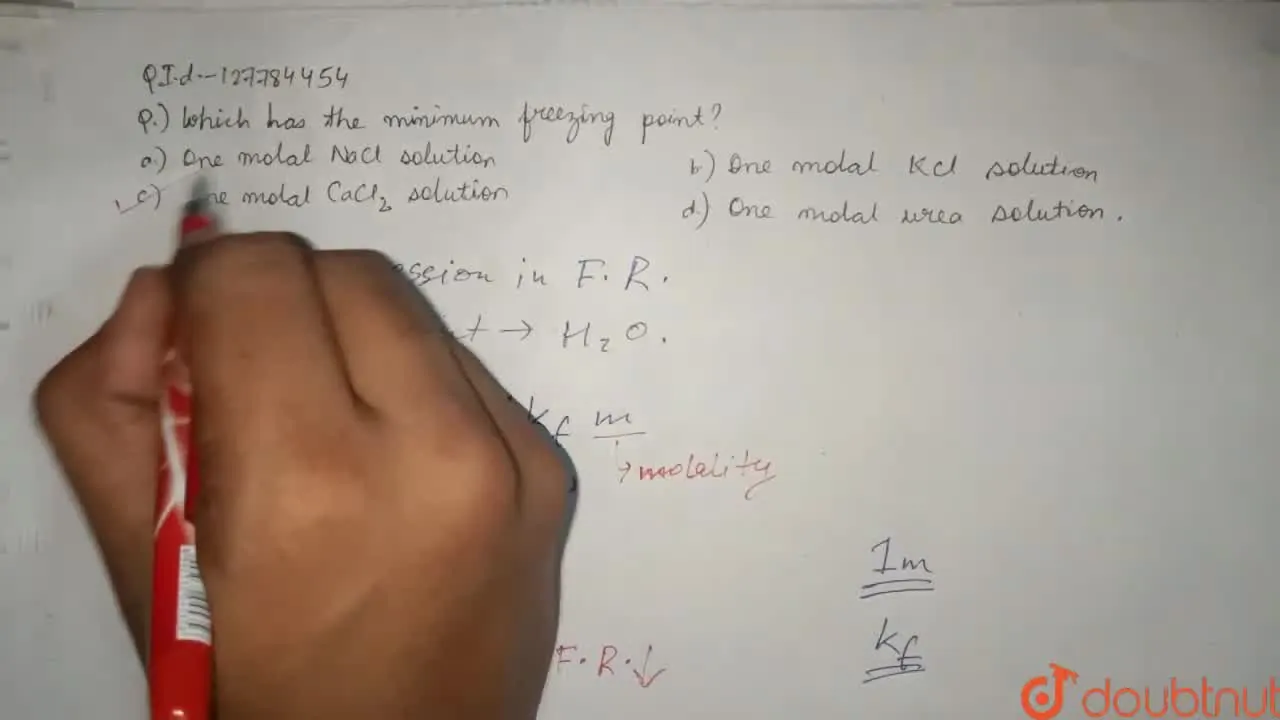 QId.-127784454
Q.) Which has the minimum freezing point?
a.) One molal NaCl solution
b.) One molal KCl solution
c.) One molal CaCl2 solution
d.) One molal urea solution.
in F.R.
→ H2O.
kf m
→ molality
1m
kf
F.R. ↓
doubtnut